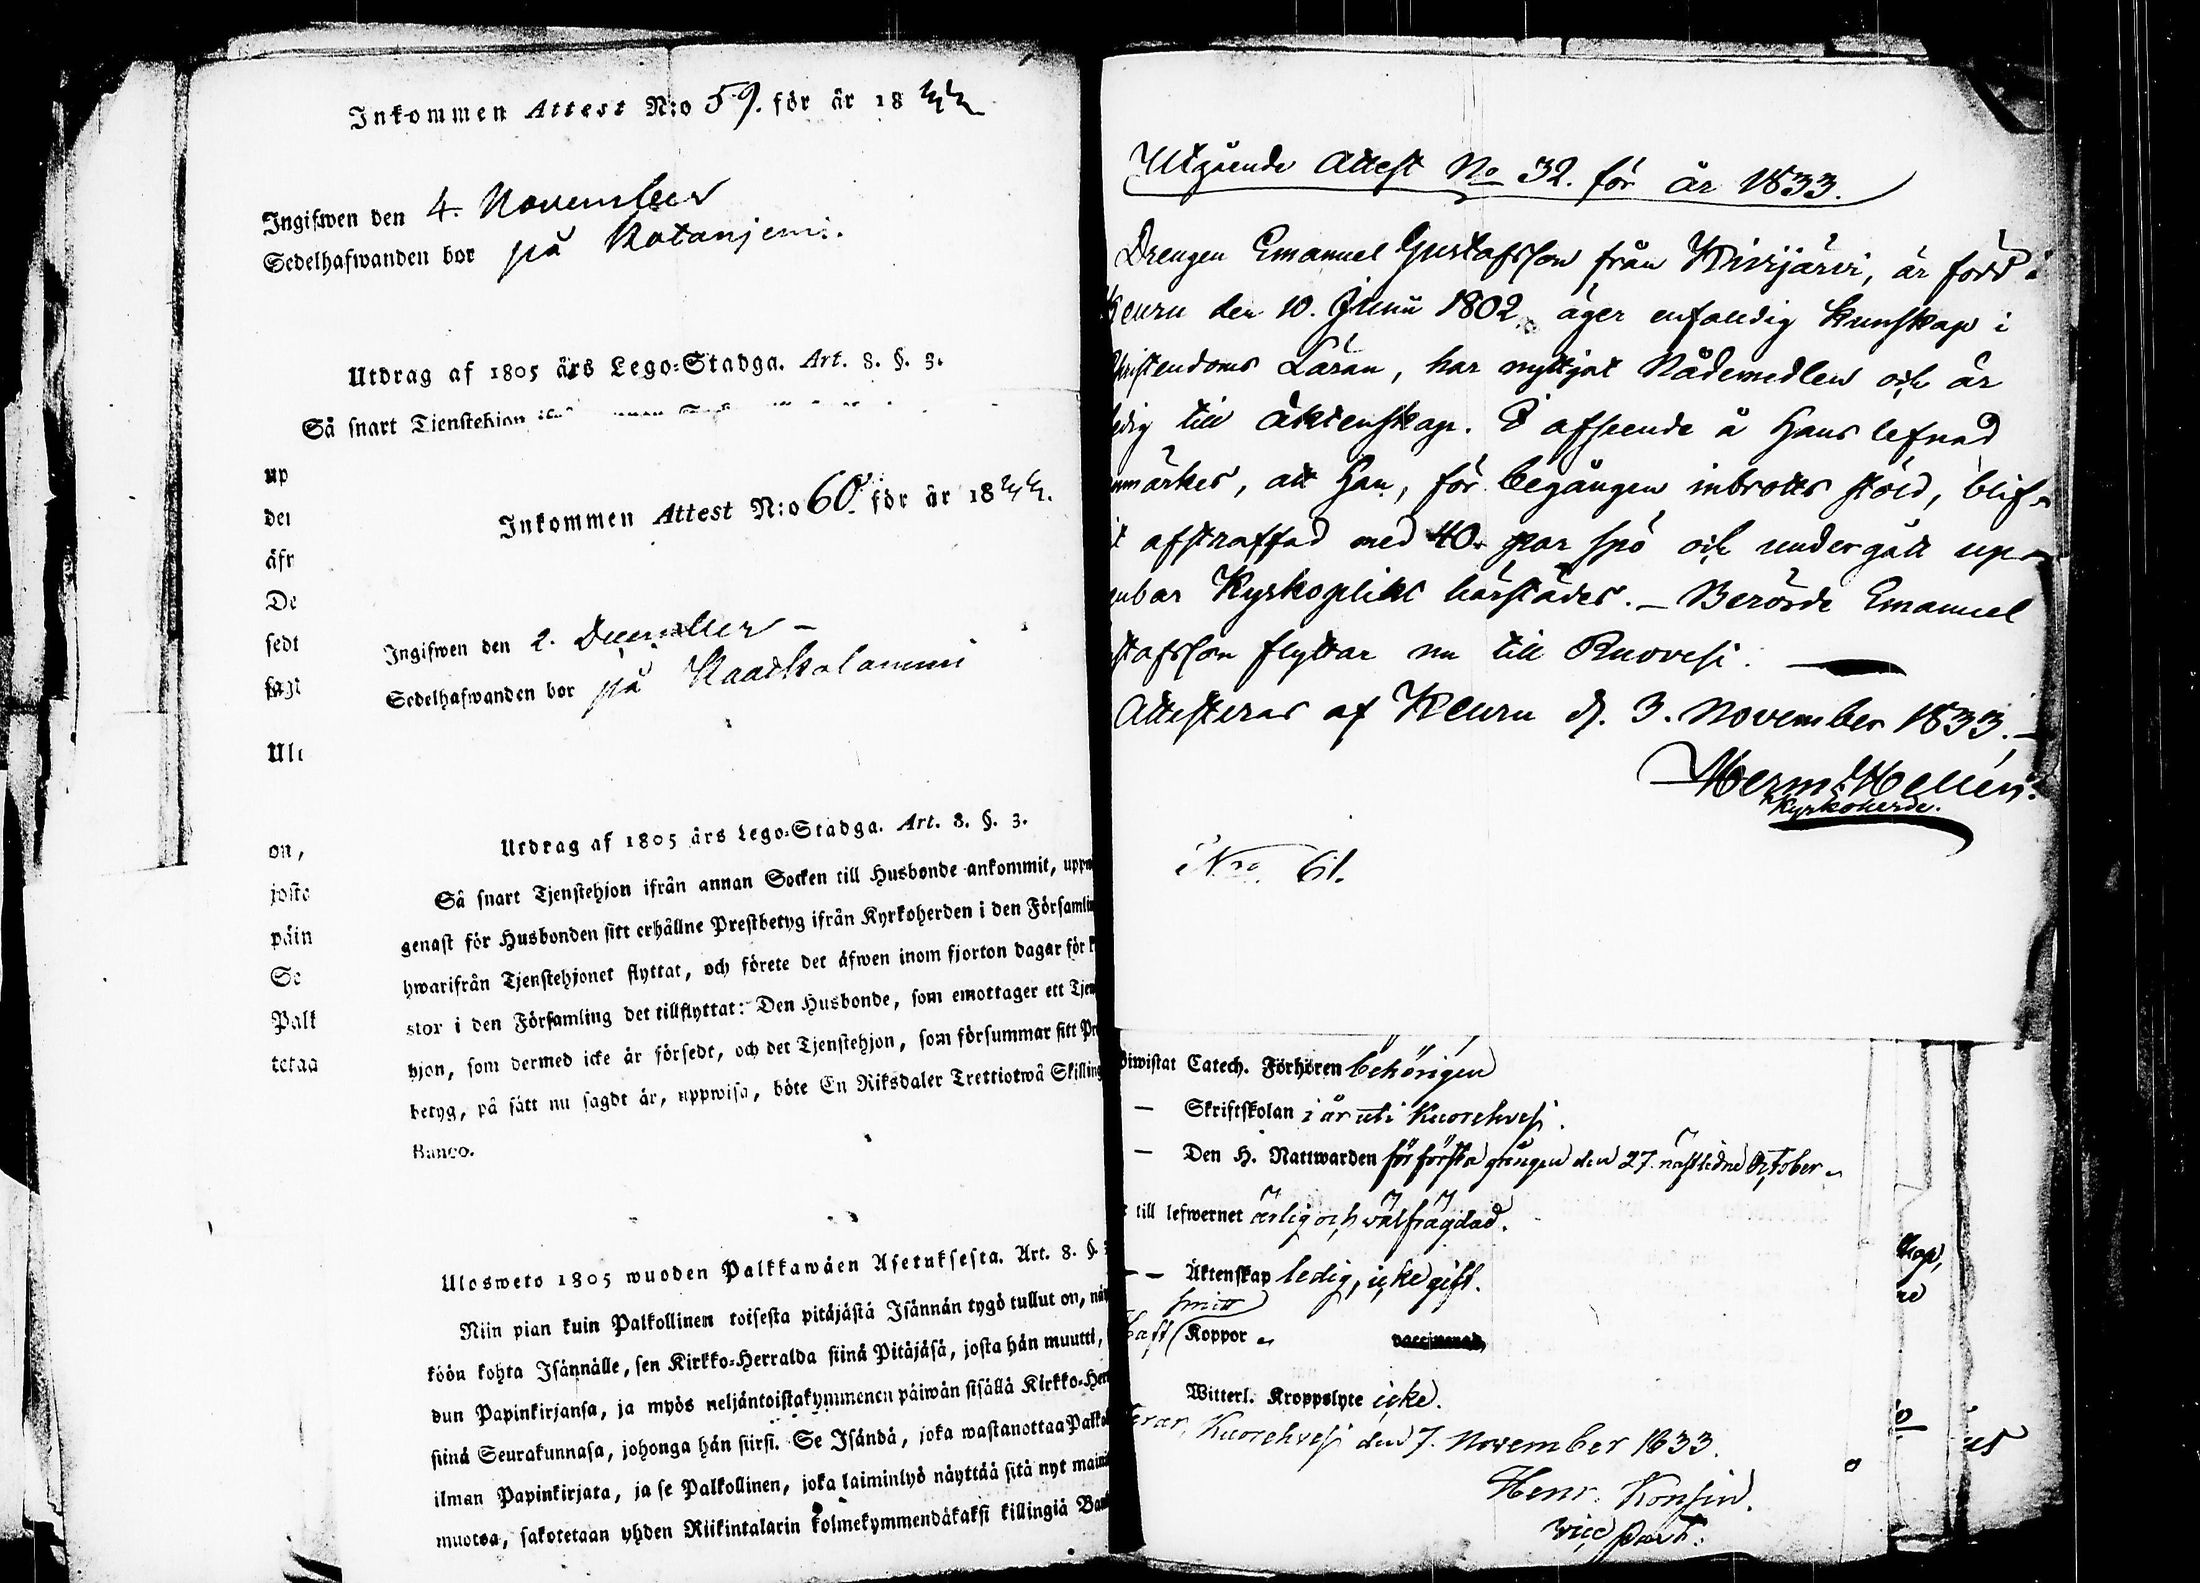 Inkommen Attest N:o 59. för år 1833
Ingifwen den 4. November
Sedelhafwanden bor på Kotanjemi.
Utdrag af 1805 års Lego-Stadga. Art. 8. §. 3.
Så snart Tienstehjon
up
det
äfr
De
sedt
sagt
Ulo
on,
josta
päin
Se
Palk
tetaa
Inkommen Attest N:o 60. för år 1833.
Ingifwen den 2. December –
Sedelhafwanden bor på
Utdrag af 1805 års Lego-Stadga. Art. 8. §. 3.
Så snart Tjenstehjon ifrån annan Socken till Husbonde ankommit, uppw
genast för Husbonden sitt erhållne Prestbetyg ifrån Kyrkoherden i den Församlin
hwarifrån Tjenstehjonet flyttat, och förete det äfwen inom fjorton dagar för K
stor i den Församling det tillflyttat: Den Husbonde, som emottager ett Tjen
hjon, som dermed icke är försedt, och det Tjenstehjon, som försummar sitt Pr
betyg, på sätt nu sagdt är, uppwisa, böte En Riksdaler Trettiotwå Skilling
Banco.
Ulosweto 1805 wuoden Palkkawäen Asetuksesta. Art. 8. §. 3
Niin pian kuin Palkollinen toisesta pitäjästä Isännän tygö tullut on, näy
köön kohta Isännälle, sen Kirkko-Herralda siinä Pitäjäsä, josta hän muutti,
dun Papinkirjansa, ja myös neljäntoistakymmenen päiwän sisällä Kirkko-Her
siinä Seurakunnasa, johonga hän siirsi. Se Isändä, joka wastanottaa Palko
ilman Papinkirjata, ja se Palkollinen, joka laiminlyö näyttää sitä nyt maini
muotoa, sakotetaan yhden Riikintalarin kolmekymmendäkaksi killingiä Ban
Utgående Attest No 32. för år 1833.
Drengen Emanuel Gustafsson från Kivijärvi, är född i
Keuru den 10. Junii 1802, äger enfaldig kunskap i
Christendoms Läran, har nyttjat Nådemedlen och är
ledig till äktenskap. I afseende å Hans lefnad
anmärkes, att Han, för begången inbrotts stöld, blif-
it afstraffad med 40. par spö och undergått up-
enbar Kyrkoplikt härstädes. – Berörde Emanuel
stafsson flyttar nu till Ruovesi.
Attesteras af Keuru d. 3. November 1833. –
Herm: Hellén.
Kyrkoherde.
Nro. 61.
Biwistat Catech. Förhören behörigen
— Skriftskolan i år uti Kuorehvesi.
— Den H. Nattwarden för första gången den 27. nästledne October.
till lefwernet ärlig och välfrägdad.
— — Äktenskap ledig, icke gift.
Haft (smitt) Koppor
Witterl. Kroppslyte icke.
Kuorehvesi den 7. November 1833.
Henr. Konsin.
vice Past.